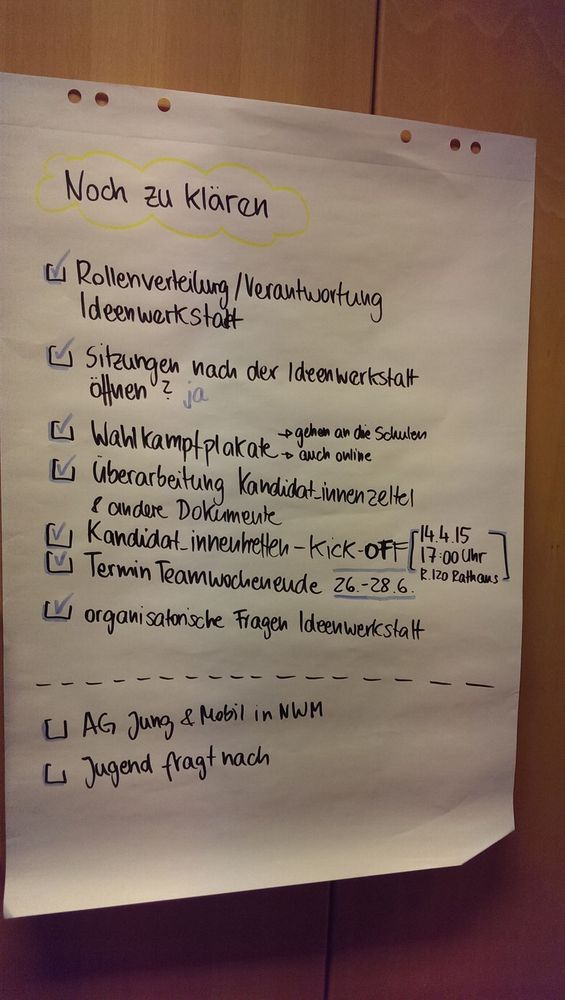 Noch zu klären
☑ Rollenverteilung/Verantwortung
Ideenwerkstatt
☑ Sitzungen nach der Ideenwerkstatt
öffnen? ja
☑ Wahlkampfplakate → gehen an die Schulen
→ auch online
☑ Überarbeitung Kandidat_innenzettel
& andere Dokumente
☑ Kandidat_innentreffen - Kick-OFF [14.4.15
17:00 Uhr
R.120 Rathaus]
☑ Termin Teamwochenende 26.-28.6.
☑ organisatorische Fragen Ideenwerkstatt
☐ AG Jung & Mobil in NWM
☐ Jugend fragt nach